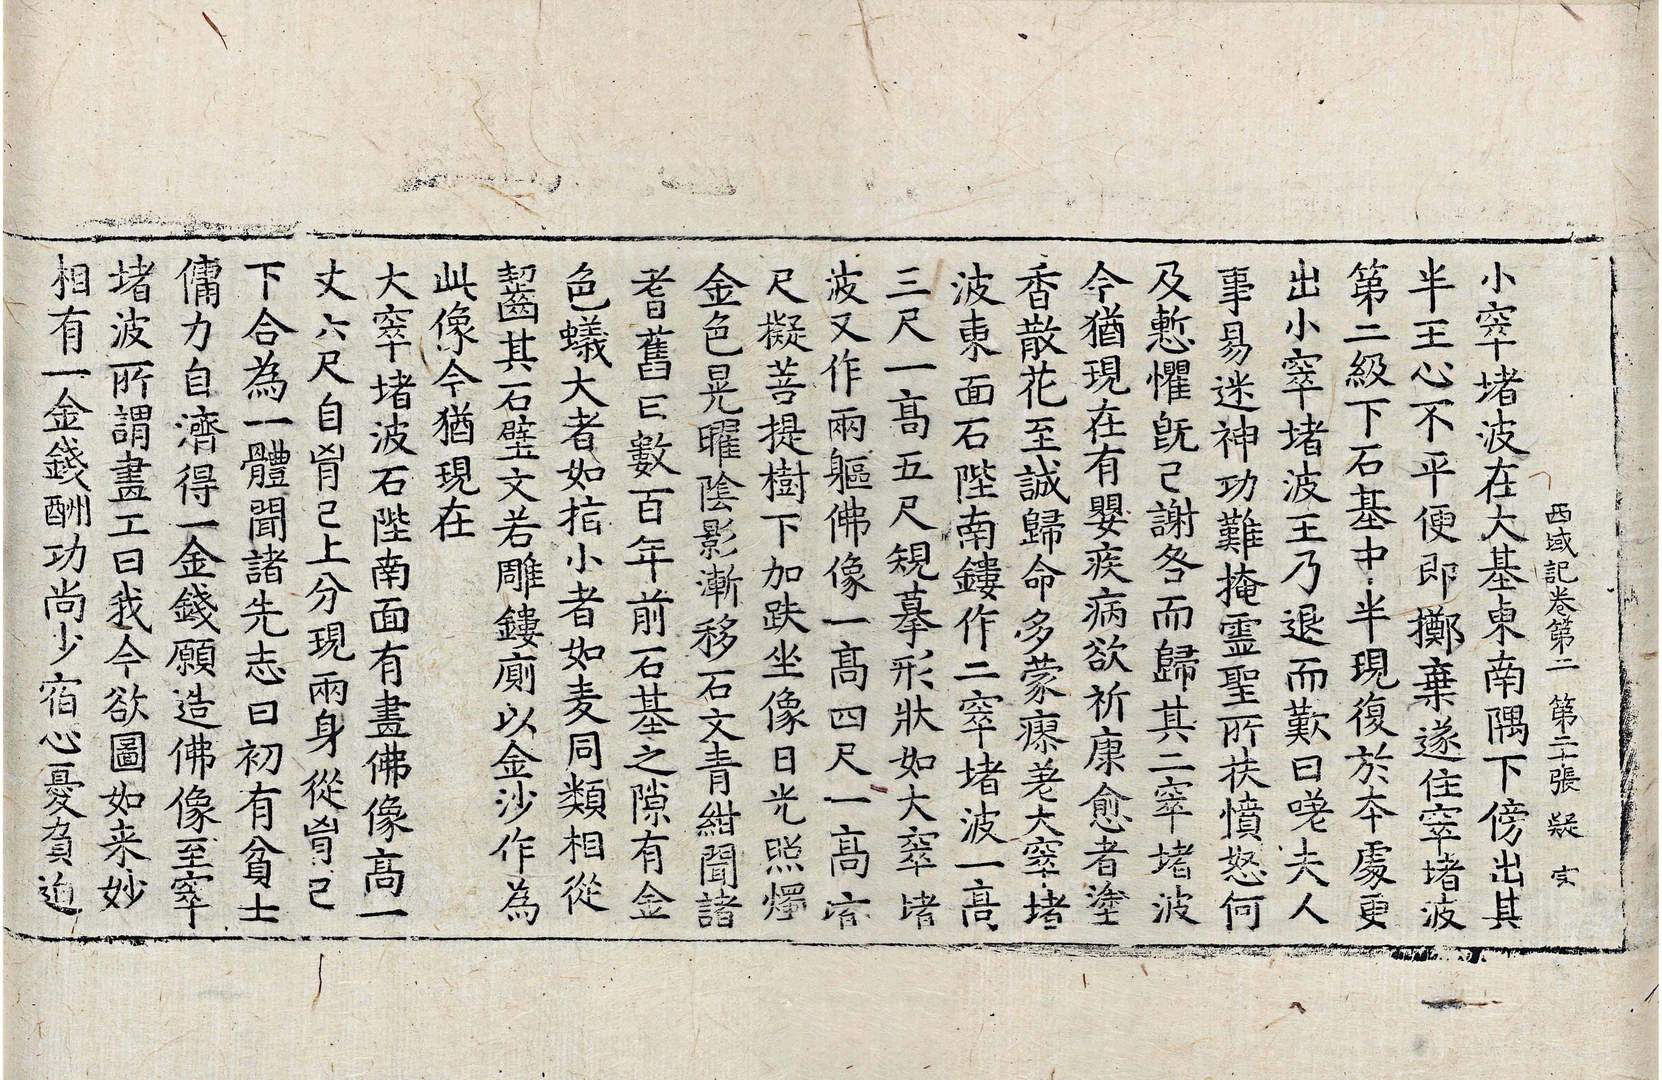 西域記卷第二 第二十張 疑
小窣堵波在大基東南隅下傍出其
半王心不平便即擲棄遂住窣堵波
第二級下石基中半現復於本處更
出小窣堵波王乃退而歎曰嗟夫人
事易迷神功難掩靈聖所扶憤怒何
及慙懼既已謝咎而歸其二窣堵波
今猶現在有嬰疾病欲祈康愈者塗
香散花至誠歸命多蒙瘳差大窣堵
波東面石陛南鏤作二窣堵波一高
三尺一高五尺規摹形狀如大窣堵
波又作兩軀佛像一高四尺一高六
尺擬菩提樹下加趺坐像日光照燭
金色晃曜陰影漸移石文青紺聞諸
耆舊曰數百年前石基之隙有金
色蟻大者如指小者如麦同類相從
齧其石壁文若雕鏤廁以金沙作為
此像今猶現在
大窣堵波石陛南面有畫佛像高一
丈六尺自胷已上分現兩身從胷已
下合為一體聞諸先志曰初有貧士
傭力自濟得一金錢願造佛像至窣
堵波所謂畫工曰我今欲圖如来妙
相有一金錢酬功尚少宿心憂負迫